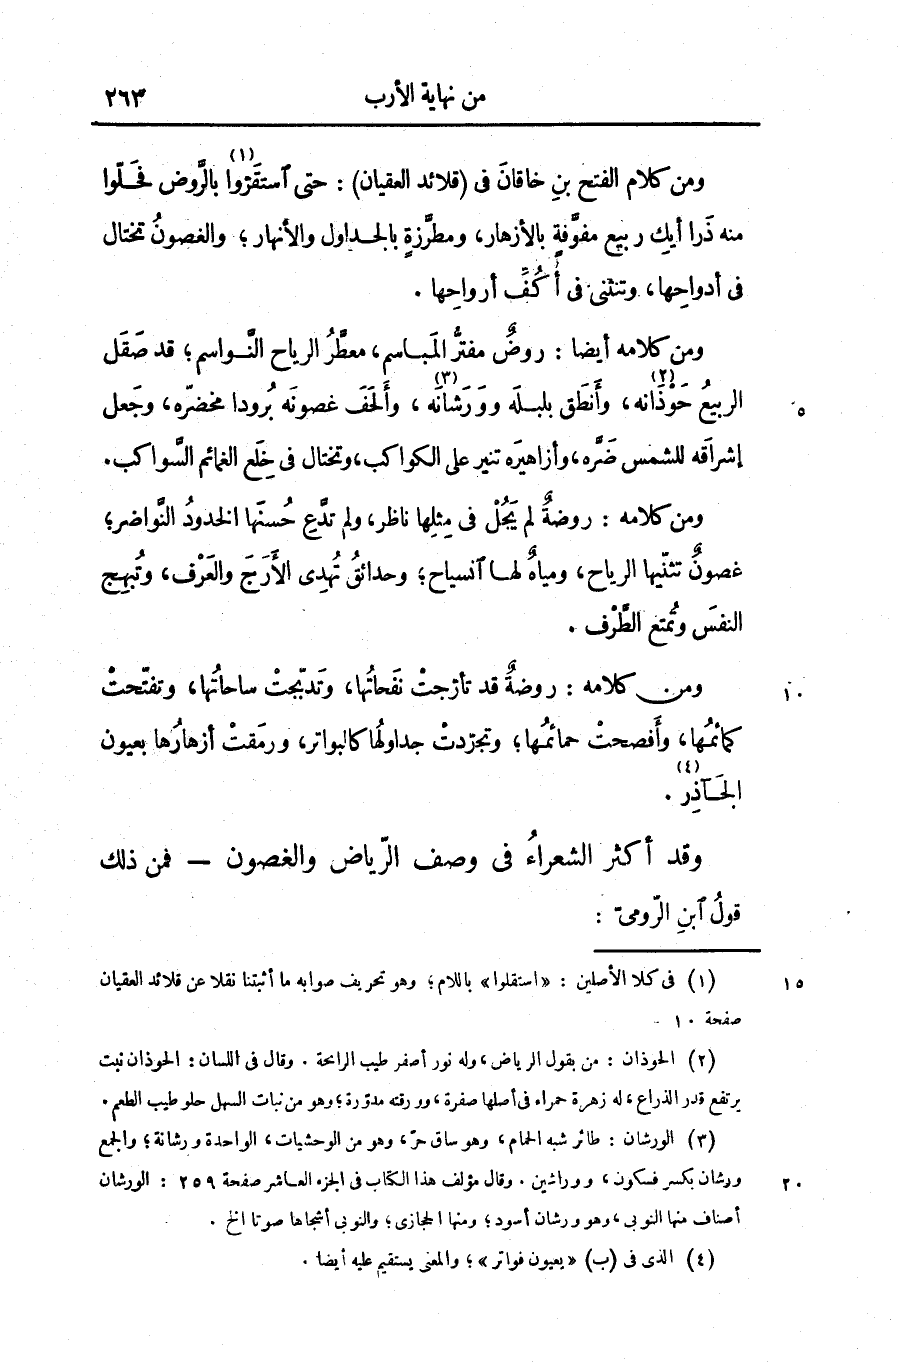 من نهاية الأرب ٢٦٣
ومن كلام الفتح بنِ خاقانَ فى (قلائد العقيان) : حتى ٱستقَرّوا (١) بالرَّوض فحَلّوا
منه ذَرا أيكِ ربيع مفوَّفةٍ بالأزهار، ومطرَّزةٍ بالجداول والأنهار؛ والغصونُ تختال
فى أدواحِها، وتنثنى فى أَكُفِّ أرواحِها .
ومن كلامه أيضا : روضٌ مفترُّ المَباسم، معطَّرُ الرياح النَّواسم؛ قد صَقَل
الربيعُ حَوْذَانَه (٢)، وأَنطَق بلبلَه ووَرَشانَه (٣)، وأَلحَفَ غصونَه بُرودا مخضرّه، وجَعل ٥
إشراقَه للشمس ضَرَّه، وأزاهيرَه تنير على الكواكب، وتختال فى خِلَع الغمائم السَّواكب.
ومن كلامه : روضةٌ لم يَجُلْ فى مِثلِها ناظر، ولم تدَّعِ حُسنَها الخدودُ النَّواضر؛
غصونٌ تثنّيها الرياح، ومياهٌ لها ٱنسياح؛ وحدائقُ تُهدِى الأَرَجَ والعَرْف، وتُبهِج
النفسَ وتُمتع الطَّرْف .
ومن كلامه : روضةٌ قد تأرّجتْ نفَحاتُها، وتَدبّجتْ ساحاتُها، وتفتّحتْ ١٠
كمائمُها، وأَفصحتْ حمائمُها؛ وتجرّدتْ جداولُها كالبواتر، ورمَقتْ أزهارُها بعيون
الجَآذِر (٤) .
وقد أكثر الشعراءُ فى وصف الرّياض والغصون — فمن ذلك
قولُ ٱبنِ الرّومىّ :
(١) فى كلا الأصلين : «استقلوا» باللام؛ وهو تحريف صوابه ما أثبتنا نقلا عن قلائد العقيان ١٥
صفحة ١٠
(٢) الحوذان : من بقول الرياض، وله نور أصفر طيب الرائحة . وقال فى اللسان : الحوذان نبت
يرتفع قدر الذراع، له زهرة حمراء فى أصلها صفرة، وورقته مدوّرة؛ وهو من نبات السهل حلو طيب الطعم .
(٣) الورشان : طائر شبه الحمام، وهو ساق حرّ، وهو من الوحشيات، الواحدة ورشانة؛ والجمع
ورشان بكسر فسكون، ووراشين . وقال مؤلف هذا الكتاب فى الجزء العاشر صفحة ٢٥٩ : الورشان ٢٠
أصناف منها النوبى، وهو ورشان أسود؛ ومنها الحجازى؛ والنوبى أشجاها صوتا الخ .
(٤) الذى فى (ب) «بعيون فواتر»؛ والمعنى يستقيم عليه أيضا .